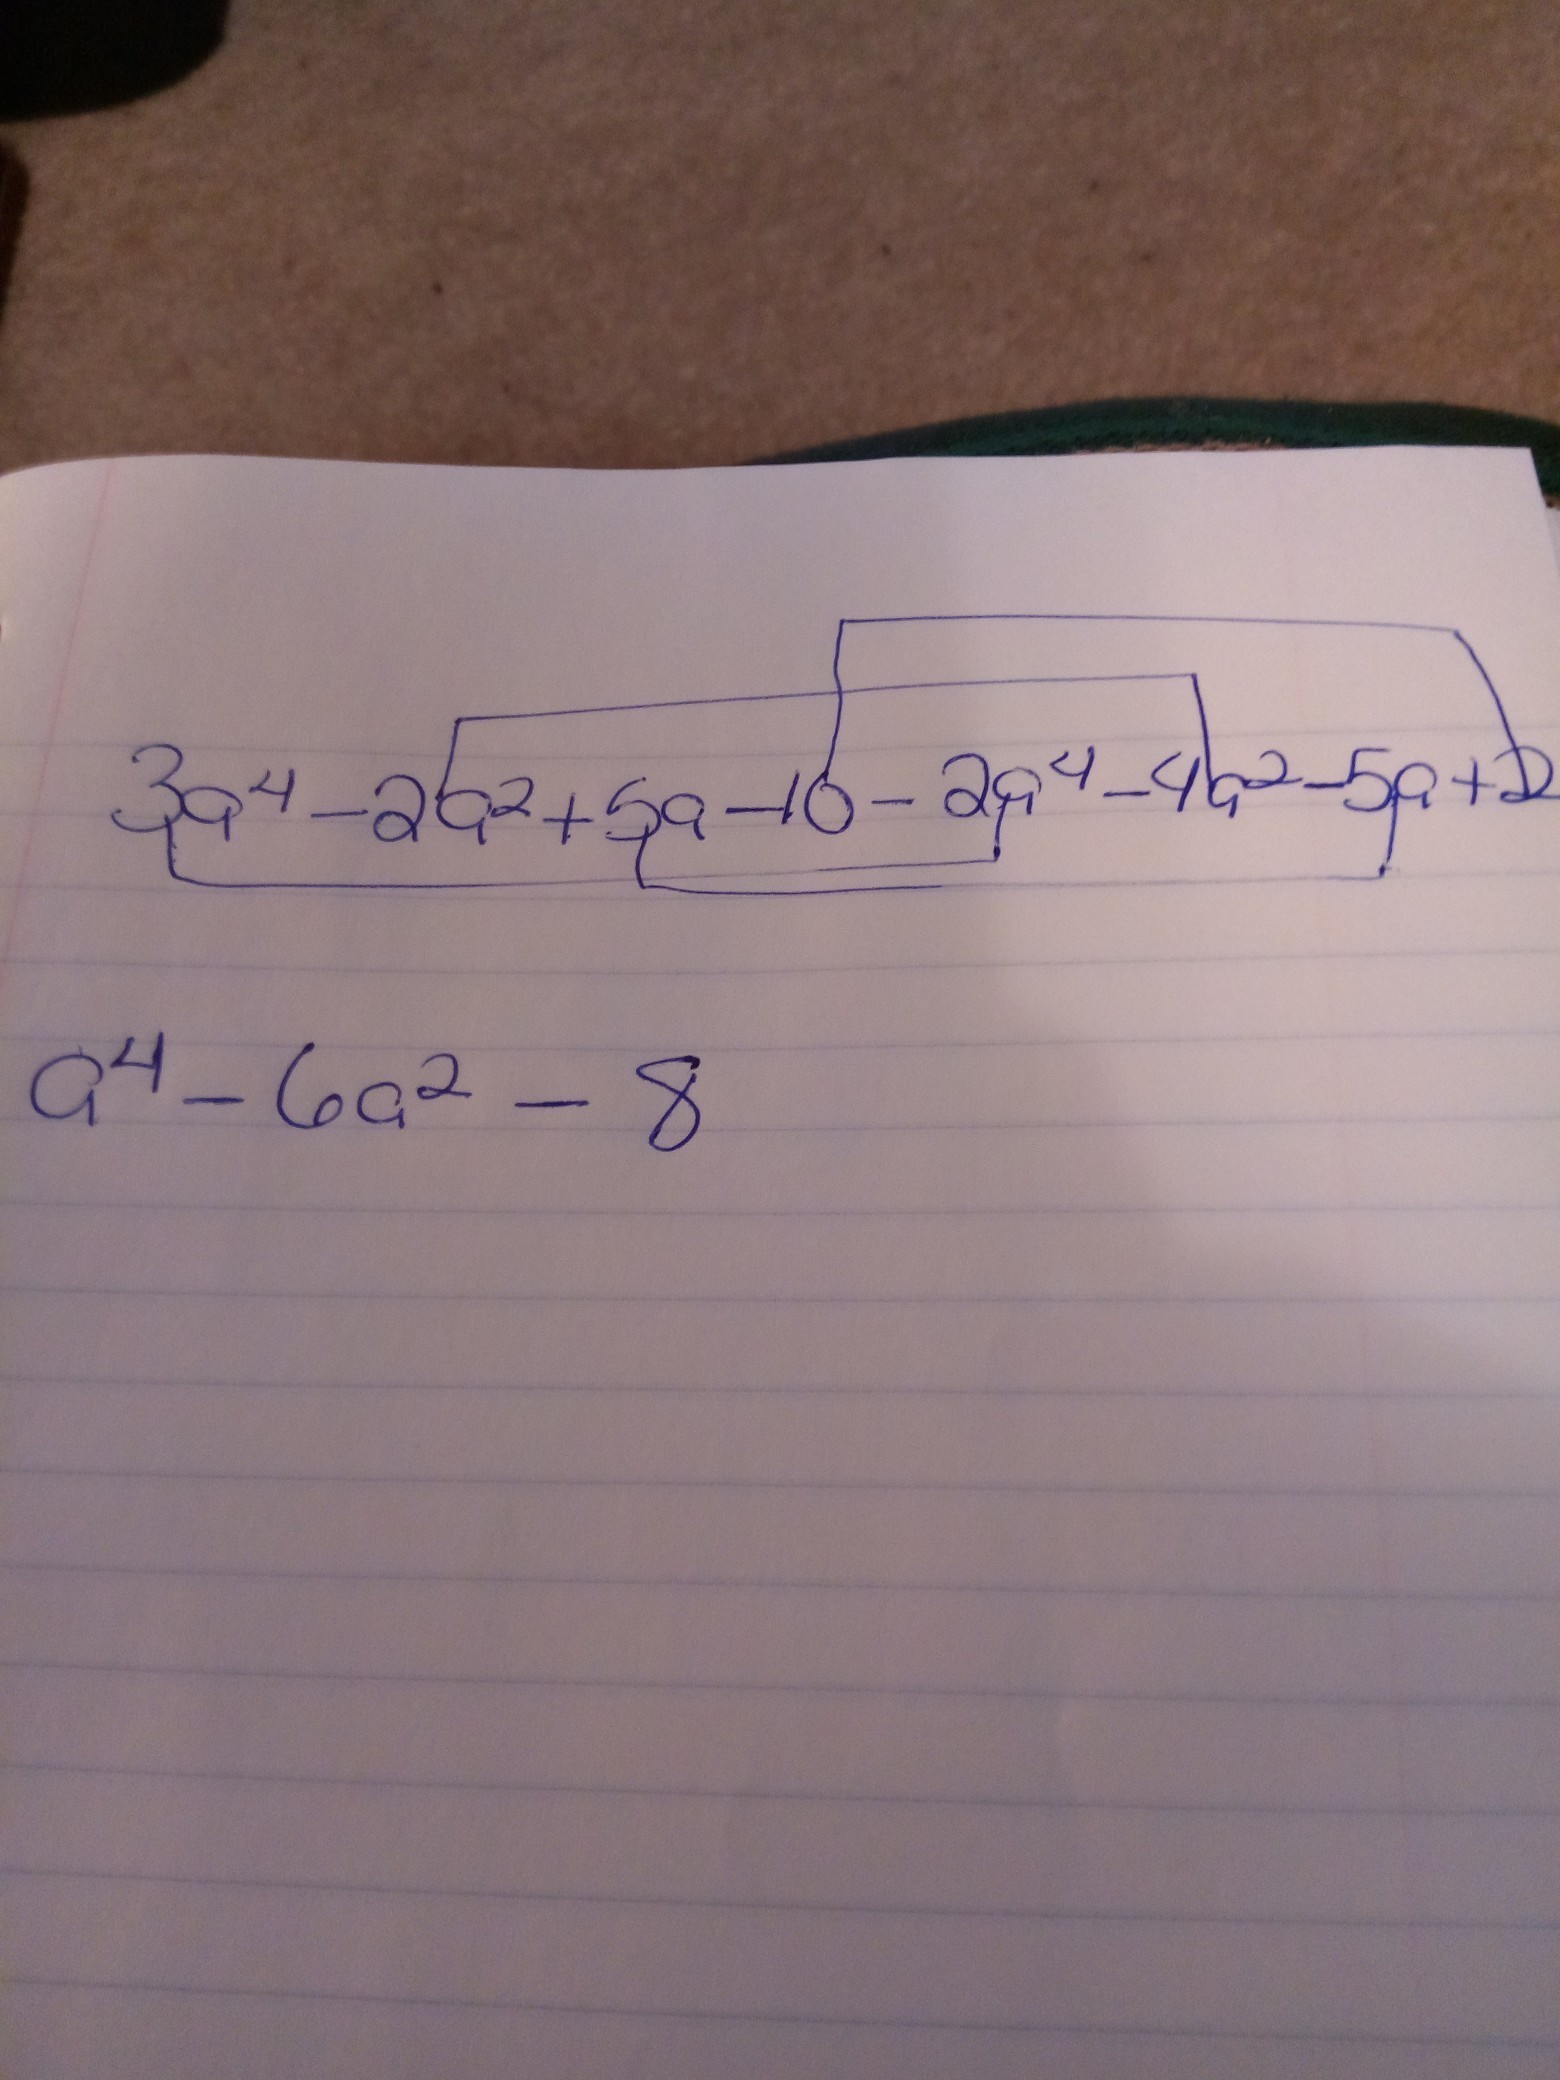 3a⁴ - 2a² + 5a - 10 - 2a⁴ - 4a² - 5a + 2
a⁴ - 6a² - 8